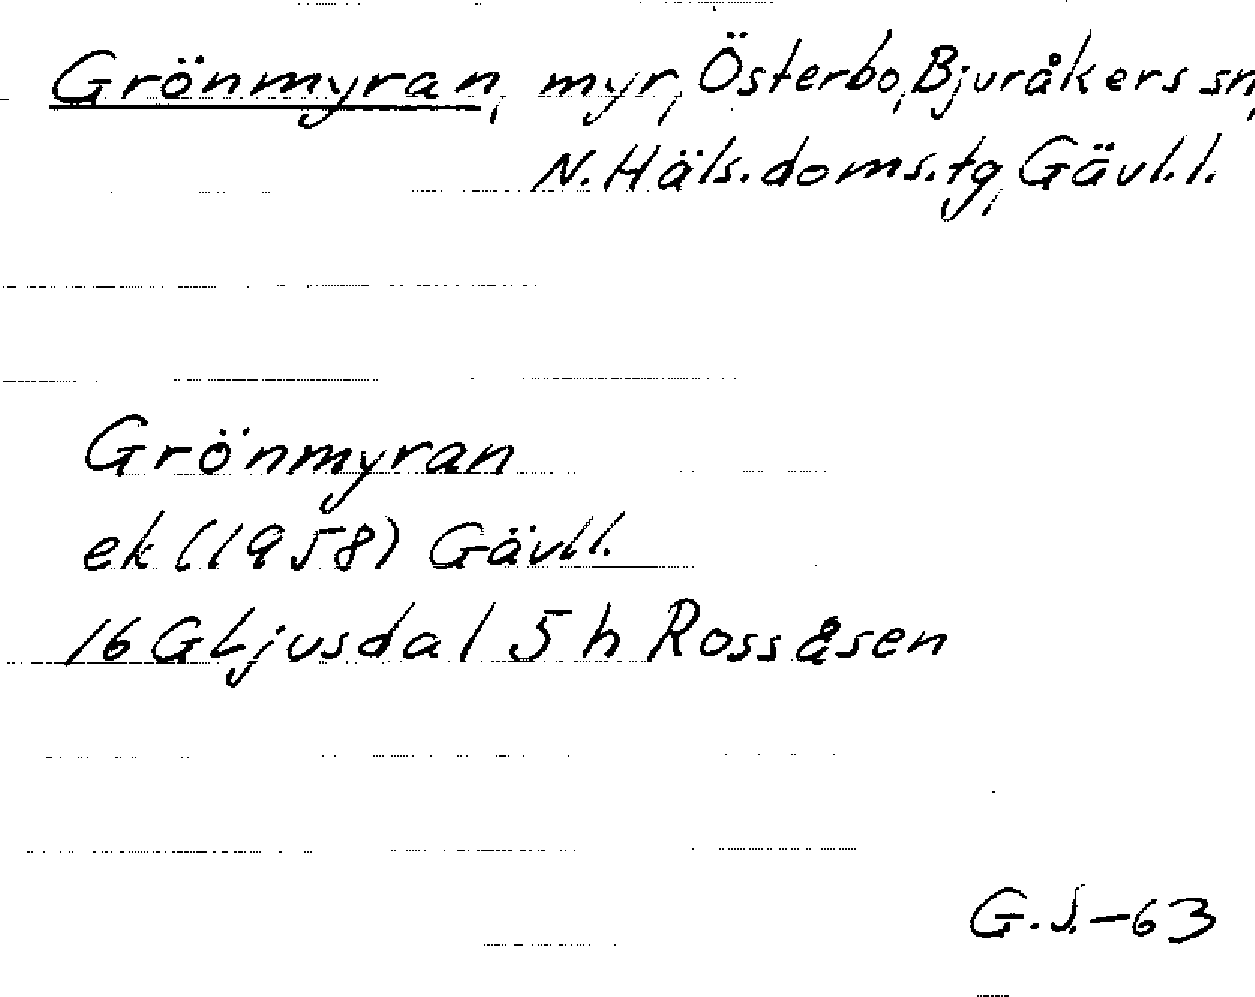 Grönmyran, myr, Österbo, Bjuråkers sn,
N. Häls. doms. tg, Gävl. l.
Grönmyran
ek (1958) Gävll.
16 G Ljusdal 5 h Rossåsen
G. J. - 63